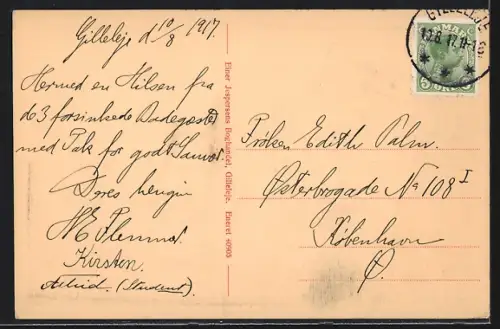 Gilleleje d 10/8 1917.
Hermed en Hilsen fra
de 3 forsinkede Badegæster
med Tak for godt Samv.
Deres hengivne
Kirsten.
Astrid. (Student)
Einer Jespersens Boghandel, Gilleleje. Eneret 40905
GILLELEJE
10.8.17.
DANMARK
5 ØRE 5
Frøken Edith Palm.
Østerbrogade No 108 I
København
Ø.